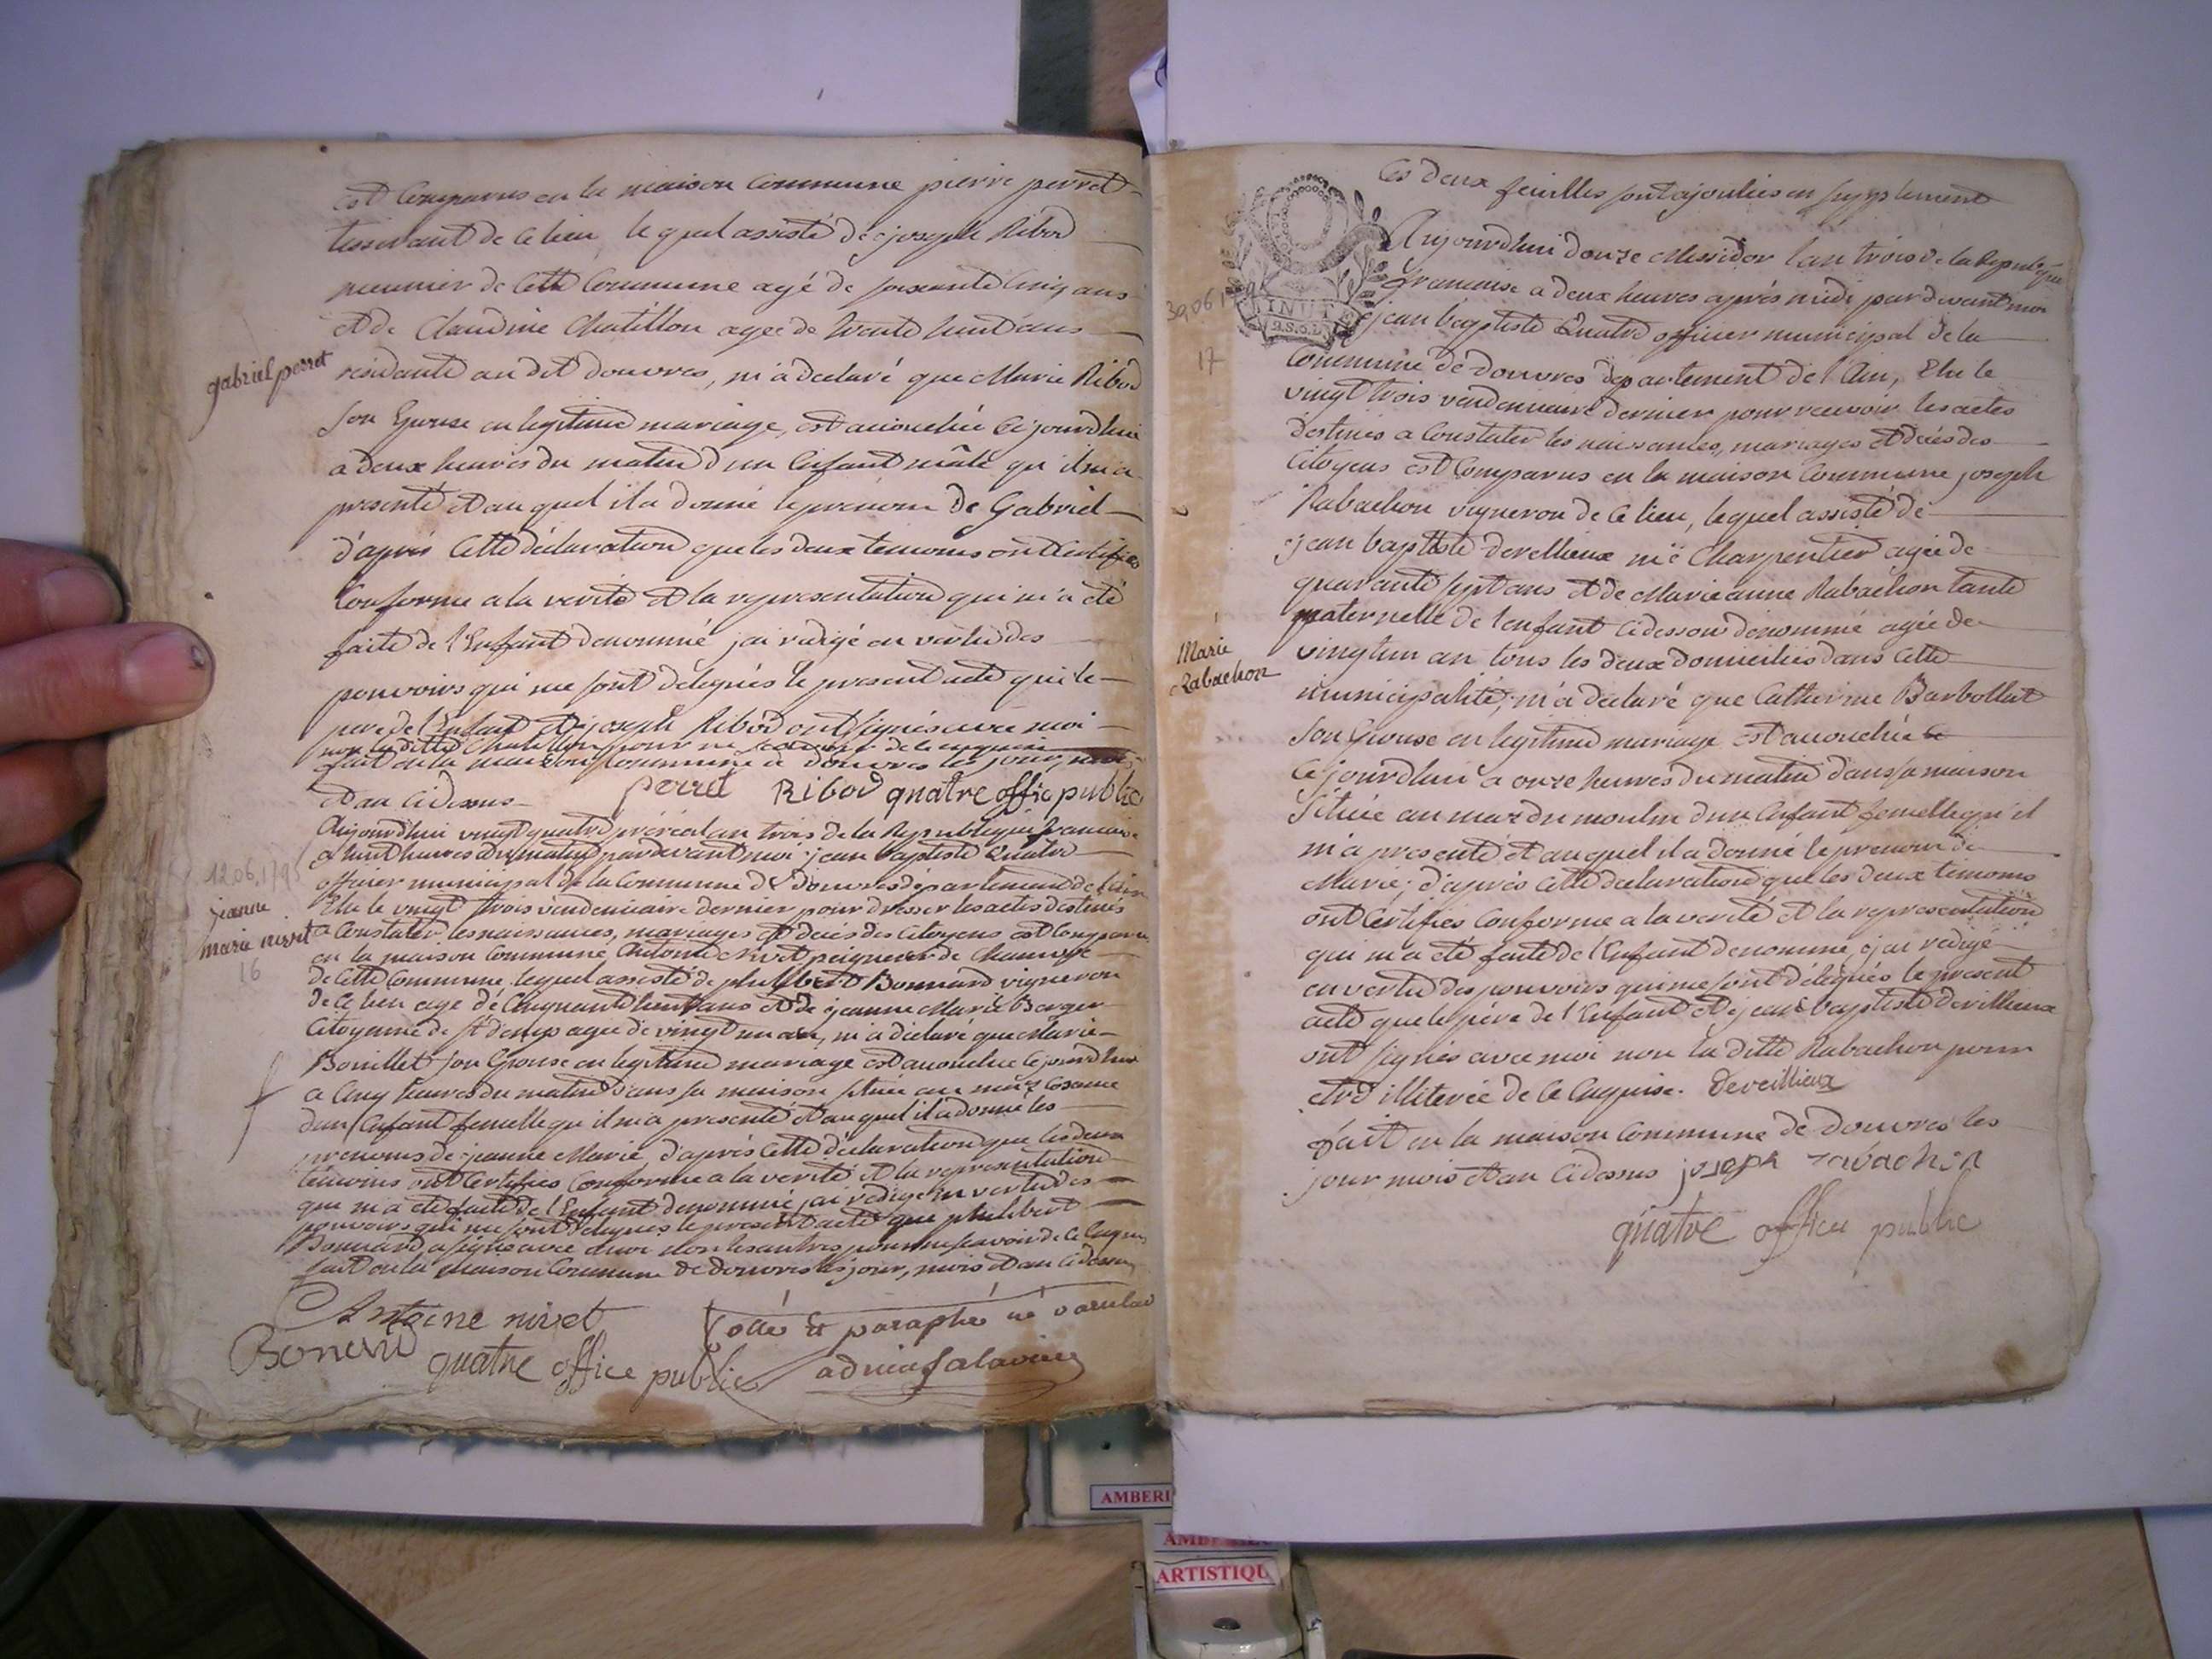 est Comparus en la maison Commune pierre perret
tisserant de ce lieu, le quel assisté de joseph Ribod
meunier de Cette Commune agé de soixante Cinq ans
et de Claudine Chatillon agée de trente huit ans
residante au dit douvres, m'a declaré que Marie Ribod
gabriel perret
son Epouse en legitime mariage, est accouchée ce jourdhui
a deux heures du matin d'un Enfant mâle qu'il m'a
presenté et au quel il a donné le prenom de Gabriel
d'aprés Cette déclaration que les deux temoins ont Certifiés
Conforme a la verité et la representation qui m'a été
faite de l'Enfant denommé j'ai redigé en vertu des
pouvoirs qui me sont délegués le present acte que le
pere de l'Enfant et joseph Ribod ont signés avec moi
non la ditte Chatillon pour ne scavoir de ce enquise
fait en la maison Commune de douvres les jour, mois
et an ci dessus perret Ribod quatre offic public
Aujourd'hui vingt quatre préréal an trois de la Republique francaise
a huit heures du matin pardevant moi jean baptiste Quatre
12.06.1795
officier municipal de la Commune de douvres département de l'ain
Elu le vingt trois vendemiaire dernier pour dresser les actes destinés
jeanne
marie nivet
16
a Constater les naissances, mariages et décés des Citoyens est Comparu
en la maison Commune Antoine Nivet peigneur de Chanvre
de Cette Commune, lequel assisté de philibert Bonnard vigneron
de ce lieu agé de Cinquante huit ans et de jeanne Marie Berger
Citoyenne de st denis agée de vingt un an, m'a déclaré que Marie
Bouillet son Epouse en legitime mariage est accouchée ce jourdhui
a Cinq heures du matin dans sa maison située au mas Cosanne
d'un Enfant femelle qu'il m'a presenté et au quel il a donné les
prenoms de jeanne Marie, d'aprés Cette déclaration que les deux
témoins ont Certifiés Conforme a la verité et la representation
qui m'a été faite de l'Enfant denommé j'ai redigé en vertu des
pouvoirs qui me sont délegués le present acte que philibert
Bonnard a signé avec moi non les autres pour ne scavoir de ce Enquis
fait en la maison Commune de douvres les jour, mois et an ci dessus
Antoine nivet
Cotté et paraphé né varietur
quatre office public
ces deux feuilles sont ajoutées en supplement
Aujourdhui douze Messidor l'an trois de la Republique
francaise a deux heures aprés midi pardevant moi
30.06.1
MINUTE
jean baptiste Quatre officier municipal de la
17
Commune de douvres département de l'Ain, Elu le
vingt trois vendemiaire dernier pour recevoir les actes
destinés a Constater les naissances, mariages et décés des
Citoyens est Comparus en la maison Commune joseph
Rabachon vigneron de ce lieu, lequel assisté de
jean baptiste devellieux me Charpentier agée de
quarante sept ans et de Marie anne Rabachon tante
paternelle de l'enfant ci dessou denommé agée de
vingt un an tous les deux domiciliés dans Cette
Marie
Rabachon
municipalité, m'a declaré que Catherine Barbollat
son Epouse en legitime mariage est accouchée
ce jourdhui a onze heures du matin dans sa maison
située au mas du moulin d'un Enfant femelle qu'il
m'a presenté et au quel il a donné le prenom de
Marie; d'aprés Cette declaration que les deux temoins
ont Certifiés Conforme a la verité et la representation
qui m'a été faite de l'Enfant denommé, j'ai redigé
en vertu des pouvoirs qui me sont délegués le present
acte que le pére de l'Enfant et jean baptiste devillieux
ont signés avec moi non la ditte Rabachon pour
etre illiterée de ce Enquise. deveillieux
fait en la maison Commune de douvres les
jour mois et an ci dessus joseph rabachon
quatre office public
AMBERI
ARTISTIQU